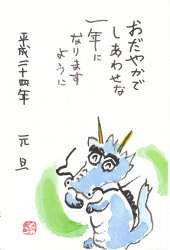 おだやかで
しあわせな
一年に
なります
ように
平成二十四年　元旦